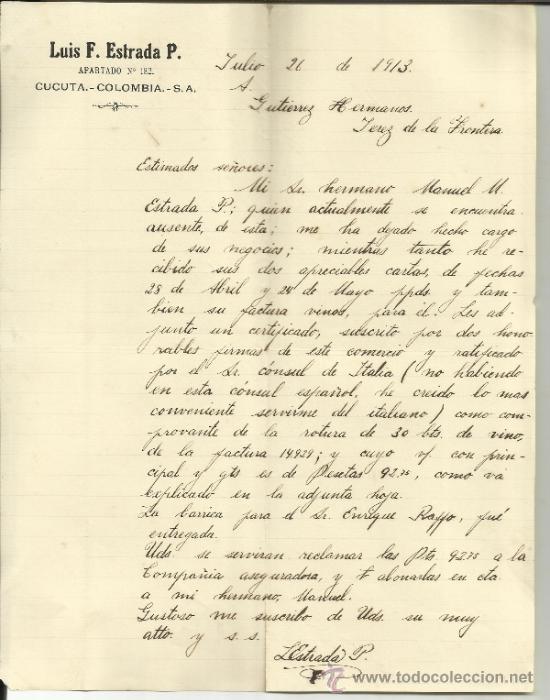 Luis F. Estrada P.
APARTADO Nº 182.
CUCUTA.-COLOMBIA.-S.A.
Julio 26 de 1913.
A.
Gutierrez Hermanos.
Jerez de la Frontera
Estimados señores:
Mi Sr. hermano Manuel M.
Estrada P.; quien actualmente se encuentra
ausente, de esta; me ha dejado hecho cargo
de sus negocios; mientras tanto hé re-
cibido sus dos apreciables cartas, de fechas
28 de Abril y 24 de Mayo ppds. y tam-
bien su factura vinos, para él. Les ad-
junto un certificado, suscrito por dos hono-
rables firmas de este comercio y ratificado
por el Sr. cónsul de Italia (no habiendo
en esta cónsul español, he creido lo mas
conveniente servirme del italiano) como com-
provante de la rotura de 30 bts. de vino,
de la factura 14929; y cuyo v/. con prin-
cipal y gts es de Pesetas 92.75, como vá
explicado en la adjunta hoja.
La barrica para el Sr. Enrique Raffo, fué
entregada.
Uds. se serviran reclamar las Pts 92.75 a la
Compañia aseguradora, y abonarlas en cta
a mi hermano, Manuel.
Gustoso me suscribo de Uds. su muy
atto. y s.s.
LEstrada P.
www.todocoleccion.net